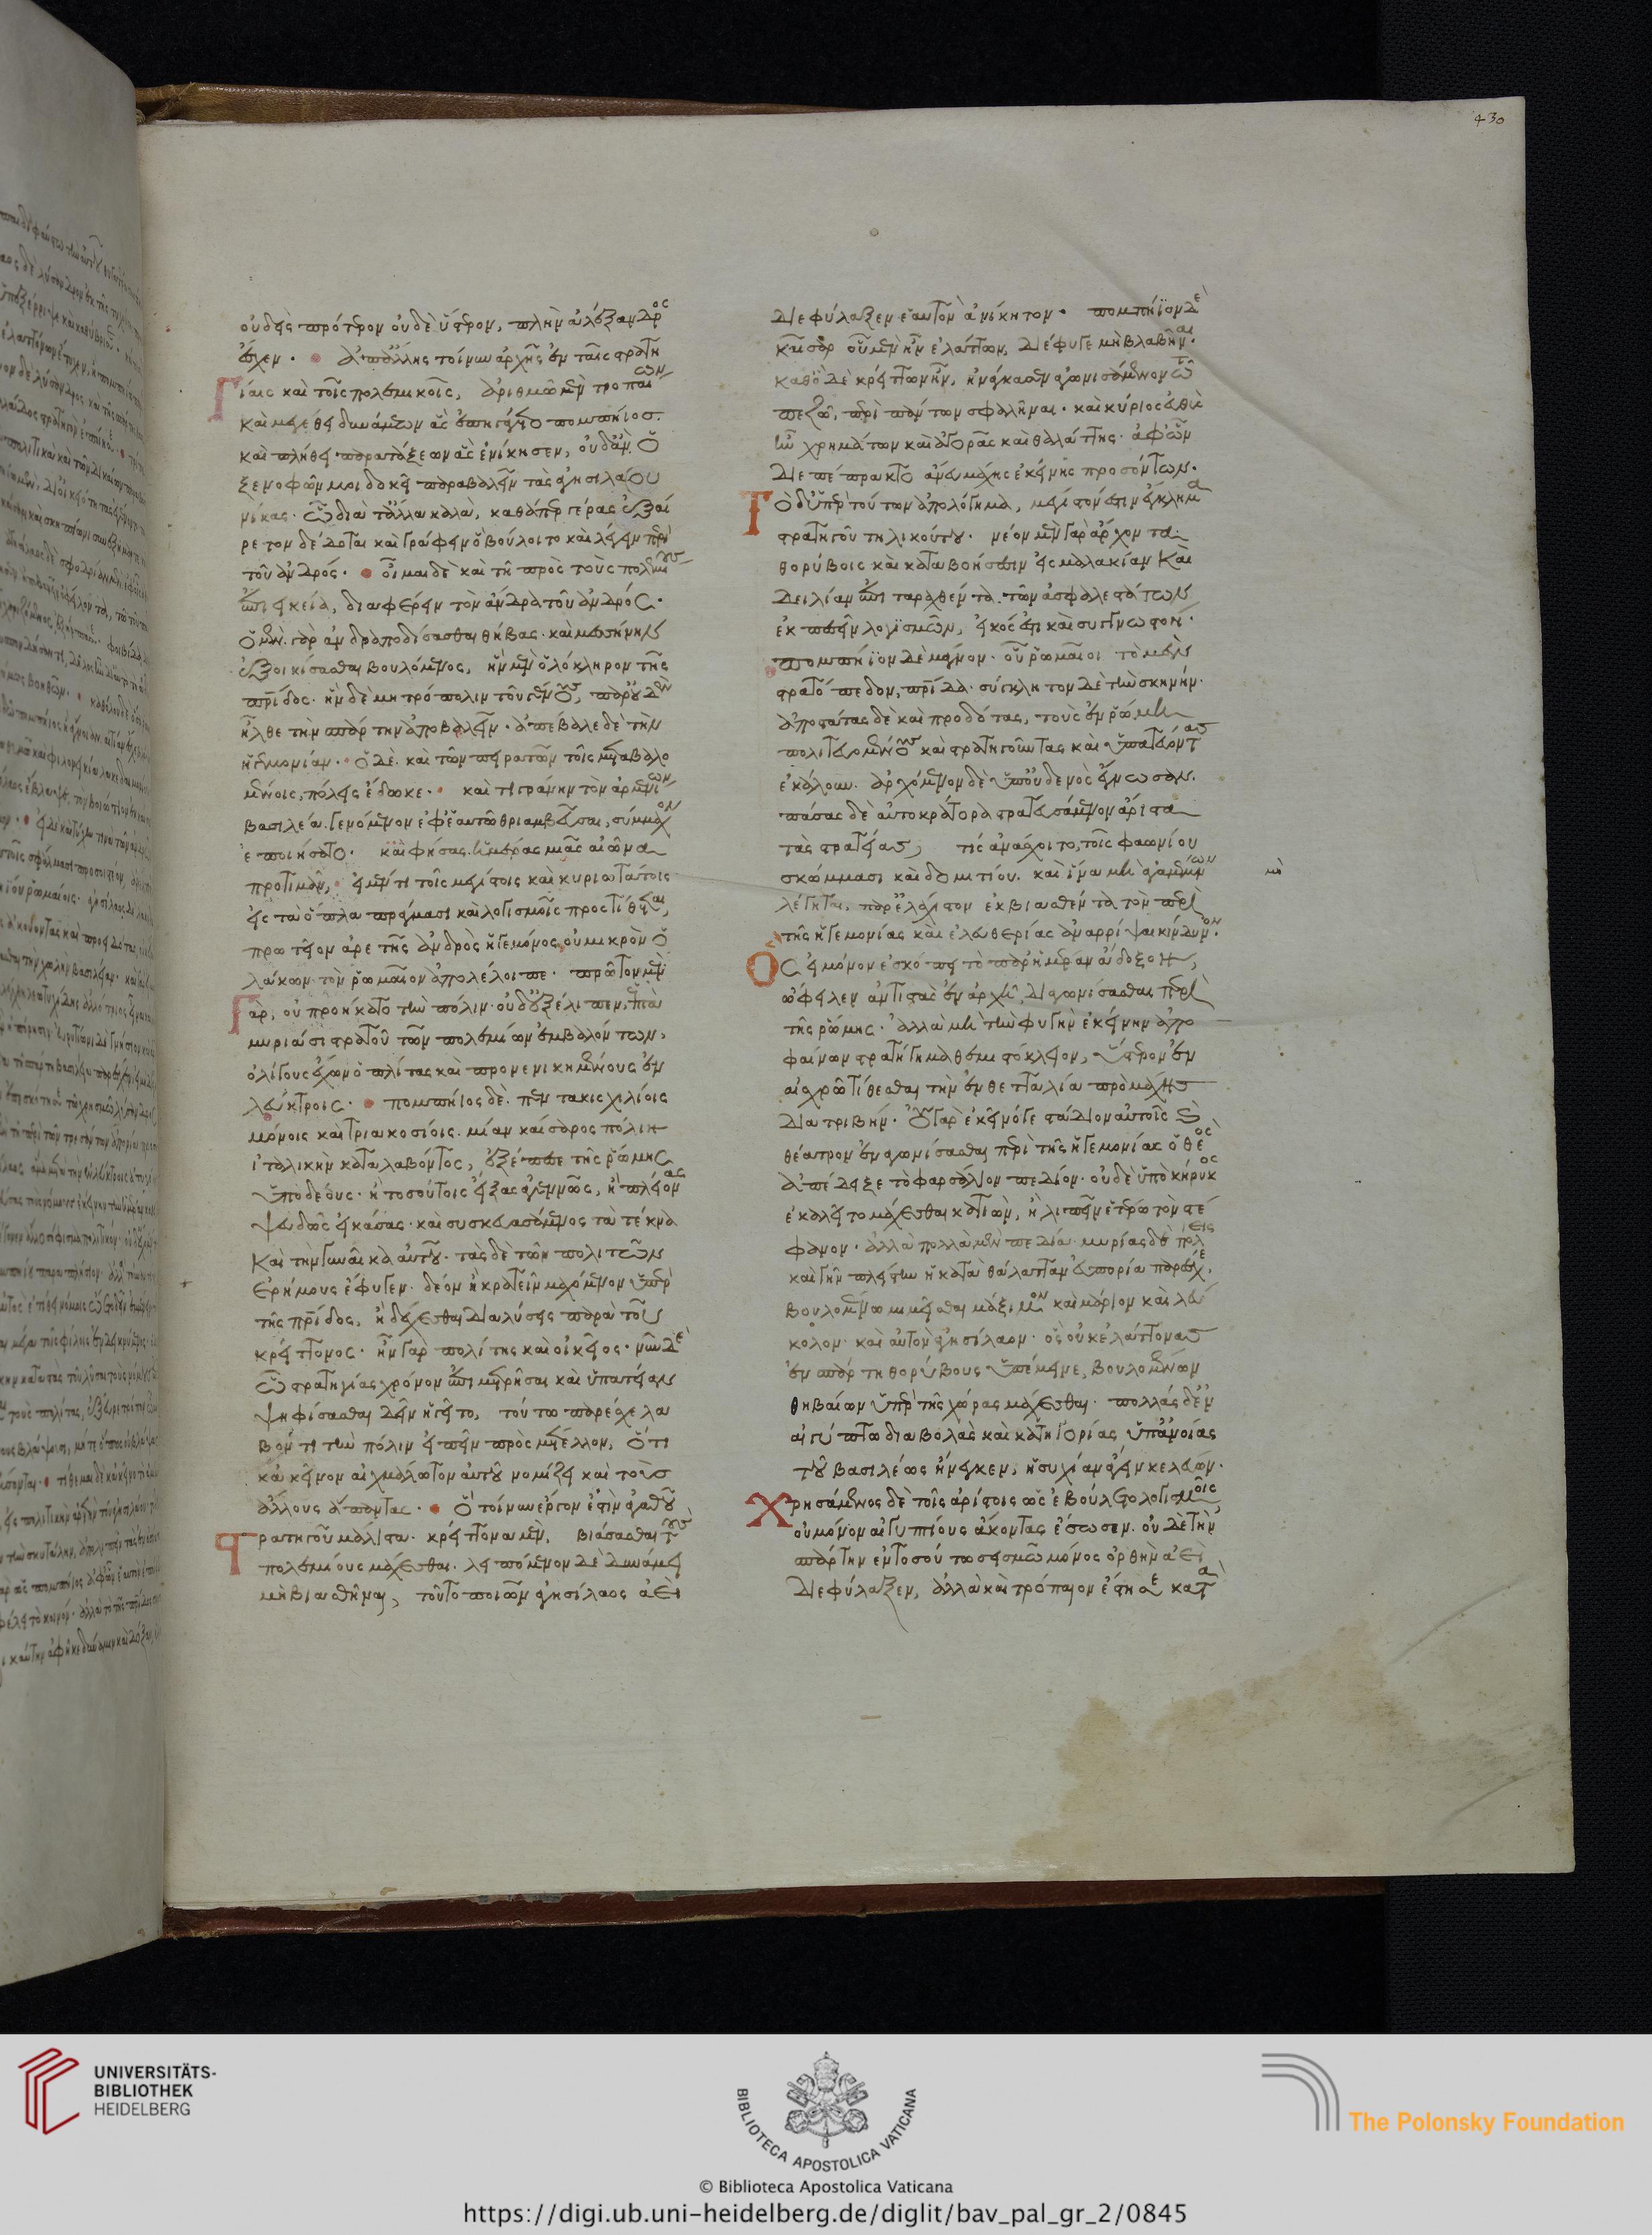 οὐδεὶς πρότερον οὐδὲ ὕστερον, πλὴν ἀλέξανδρος
ἔσχεν · ἀπ' ἄλλης τοίνυν ἀρχῆς ἐν ταῖς στρατη
γίαις καὶ τοῖς πολεμικοῖς, ἀριθμῶ μὲν τροπαίων
καὶ μεγέθει δυνάμεων ἃς ἐπηγάγετο πομπήιος.
καὶ πλήθει παρατάξεων ἃς ἐνίκησεν, οὐδ' ἂν ὁ
ξενοφῶν μοι δοκεῖ παραβαλεῖν τὰς ἀγησιλάου
νίκας · ᾧ διὰ τἄλλα καλὰ, καθάπερ γέρας ἐξαί
ρετον δέδοται καὶ γράφειν ὃ βούλοιτο καὶ λέγειν περὶ
τοῦ ἀνδρός · οἶμαι δὲ καὶ τῇ πρὸς τοὺς πολεμίους
ἐπιεικεία, διαφέρειν τὸν ἄνδρα τοῦ ἀνδρός ·
ὁ μὲν γὰρ ἀνδραποδίσασθαι θήβας · καὶ μεσήνην
ἐξοικίσασθαι βουλόμενος, ἣν μὲν ὁλόκληρον τῆς
πατρίδος · ἣν δὲ μητρόπολιν τοῦ γένους, παρ' οὐδὲν
ἦλθε τὴν σπάρτην ἀποβαλεῖν · ἀπέβαλε δὲ τὴν
ἡγεμονίαν · ὁ δὲ καὶ τῶν πειρατῶν τοῖς μεταβαλο
μένοις, πόλεις ἔδωκε · καὶ τιγράνην τὸν ἀρμενίων
βασιλέα γενόμενον ἐφ' ἑαυτῶ θριαμβεῦσαι, σύμμαχον
ἐποιήσατο · καὶ φήσας ἡμέρας μιᾶς αἰῶνα
προτιμᾶν, εἰ μέν τι τοῖς μεγίστοις καὶ κυριωτάτοις
εἰς τὰ ὅπλα πράγμασι καὶ λογισμοῖς προστίθεται,
πρωτεῖον ἀρετῆς ἀνδρὸς ἡγεμόνος, οὐ μικρὸν ὁ
λάκων τὸν ῥωμαῖον ἀπολέλοιπε · πρῶτον μὲν
γὰρ, οὐ προήκατο τὴν πόλιν οὐδ' ἐξέλιπεν, ἑπτὰ
μυριάσι στρατοῦ τῶν πολεμίων ἐμβαλόντων,
ὀλίγους ἔχων ὁπλίτας καὶ προνενικημένους ἐν
λεύκτροις · πομπήιος δὲ πεντακισχιλίοις
μόνοις καὶ τριακοσίοις μίαν καίσαρος πόλιν
ἰταλικὴν καταλαβόντος, ἐξέπεσε τῆς ῥώμης
ὑπὸ δέους · ἢ τοσούτοις εἴξας ἀγεννῶς, ἢ πλέονας
ψευδῶς εἰκάσας · καὶ συσκευασάμενος τὰ τέκνα
καὶ τὴν γυναῖκα αὐτοῦ · τὰς δὲ τῶν πολιτῶν
ἐρήμους ἔφυγεν · δέον ἢ κρατεῖν μαχόμενον ὑπὲρ
τῆς πατρίδος, ἢ δέχεσθαι διαλύσεις παρὰ τοῦ
κρείττονος · ἦν γὰρ πολίτης καὶ οἰκεῖος · νῦν δὲ
ᾧ στρατηγίας χρόνον ἐπιμετρῆσαι καὶ ὑπατείαν
ψηφίσασθαι δεῖν ἡγεῖτο, τούτω παρέσχε λα
βόντι τὴν πόλιν εἰπεῖν πρὸς μέτελλον, ὅτι
κἀκεῖνον αἰχμάλωτον αὐτοῦ νομίζει καὶ τοὺς
ἄλλους ἅπαντας · ὃ τοίνυν ἔργον ἐστὶν ἀγαθοῦ
στρατηγοῦ μάλιστα · κρείττονα μὲν, βιάσασθαι τοὺς
πολεμίους μάχεσθαι · λειπόμενον δὲ δυνάμει
μὴ βιασθῆναι, τοῦτο ποιῶν ἀγησίλαος ἀεὶ
διεφύλαξεν ἑαυτὸν ἀνίκητον · πομπήϊον δὲ
καῖσαρ οὗ μὲν ἦν ἐλάττων, διέφυγε μὴ βλαβῆναι ·
καθὸ δὲ κρείττων ἦν, ἠνάγκασεν ἀγωνισάμενον τῶ
πεζῶ, περὶ πάντων σφαλῆναι · καὶ κύριος εὐθὺς
ἦν χρημάτων καὶ ἀγορᾶς καὶ θαλάττης · ἀφ' ὧν
διεπέπρακτο ἄνευ μάχης ἐκείνης προσόντων ·
τὸ δ' ὑπὲρ τούτων ἀπολόγημα, μέγιστόν ἐστιν ἔγκλημα
στρατηγοῦ τηλικούτου · νέον μὲν γὰρ ἄρχοντα
θορύβοις καὶ καταβοήσεσιν εἰς μαλακίαν καὶ
δειλίαν ἐπιταραχθέντα τῶν ἀσφαλεστάτων
ἐκπεσεῖν λογισμῶν, εἰκός ἐστι καὶ συγγνωστόν ·
πομπήϊον δὲ μάγνον · οὗ ῥωμαῖοι τὸ μὲν
στρατόπεδον, πατρίδα · σύγκλητον δὲ τὴν σκηνήν ·
ἀποστάτας δὲ καὶ προδότας, τοὺς ἐν ῥώμῃ
πολιτευομένους καὶ στρατηγοῦντας καὶ ὑπατεύοντας
ἐκάλουν · ἀρχόμενον δὲ ὑπ' οὐδενὸς ἔγνωσαν ·
πάσας δὲ αὐτοκράτορα στρατευσάμενον ἄριστα
τὰς στρατείας, τίς ἀνάσχοιτο, τοῖς φαωνίου
σκώμμασι καὶ δομιτίου · καὶ ἵνα μὴ ἀγαμέμνων
λέγηται, παρ' ἐλάχιστον ἐκβιασθέντα τὸν περὶ
τῆς ἡγεμονίας καὶ ἐλευθερίας ἀναρρίψαι κίνδυνον ·
ὃς εἰ μόνον ἐσκόπει τὸ παρ' ἡμέραν ἄδοξον,
ὤφειλεν ἀντιστὰς ἐν ἀρχῇ, διαγωνίσασθαι περὶ
τῆς ῥώμης · ἀλλὰ μὴ τὴν φυγὴν ἐκείνην ἀπο
φαίνων στρατήγημα θεμιστόκλειον, ὕστερον ἐν
αἰσχρῶ τίθεσθαι τὴν ἐν θετταλία πρὸ μάχης
διατριβήν · οὐ γὰρ ἐκεῖνό γε στάδιον αὐτοῖς καὶ
θέατρον ἐναγωνίσασθαι περὶ τῆς ἡγεμονίας ὁ θεὸς
ἀπέδειξε τὸ φαρσάλιον πεδίον · οὐδὲ ὑπὸ κήρυκος
ἐκαλεῖτο μάχεσθαι κατιὼν, ἢ λιπεῖν ἑτέρω τὸν στέ
φανον · ἀλλὰ πολλὰ μὲν πεδία · μυρίας δὲ πόλεις
καὶ γῆν πλείστην ἡ κατὰ θάλατταν εὐπορία παρέσχε,
βουλομένω μιμεῖσθαι μάξιμον καὶ μάριον καὶ λεύ
κολον · καὶ αὐτὸν ἀγησίλαον · ὃς οὐκ ἐλάττονας
ἐν σπάρτῃ θορύβους ὑπέμεινε, βουλομένων
θηβαίων ὑπὲρ τῆς χώρας μάχεσθαι · πολλὰς δ' ἐν
αἰγύπτω διαβολὰς καὶ κατηγορίας ὑπονοίας
τοῦ βασιλέως ἤνεγκεν, ἡσυχίαν ἄγειν κελεύων ·
χρησάμενος δὲ τοῖς ἀρίστοις ὡς ἐβούλετο λογισμοῖς,
οὐ μόνον αἰγυπτίους ἄκοντας ἔσωσεν · οὐδὲ τὴν
σπάρτην ἐν τοσούτω σεισμῶ μόνος ὀρθὴν ἀεὶ
διεφύλαξεν, ἀλλὰ καὶ τρόπαιον ἔστησε κατὰ
430
UNIVERSITÄTS-
BIBLIOTHEK
HEIDELBERG
BIBLIOTECA APOSTOLICA VATICANA
The Polonsky Foundation
© Biblioteca Apostolica Vaticana
https://digi.ub.uni-heidelberg.de/diglit/bav_pal_gr_2/0845